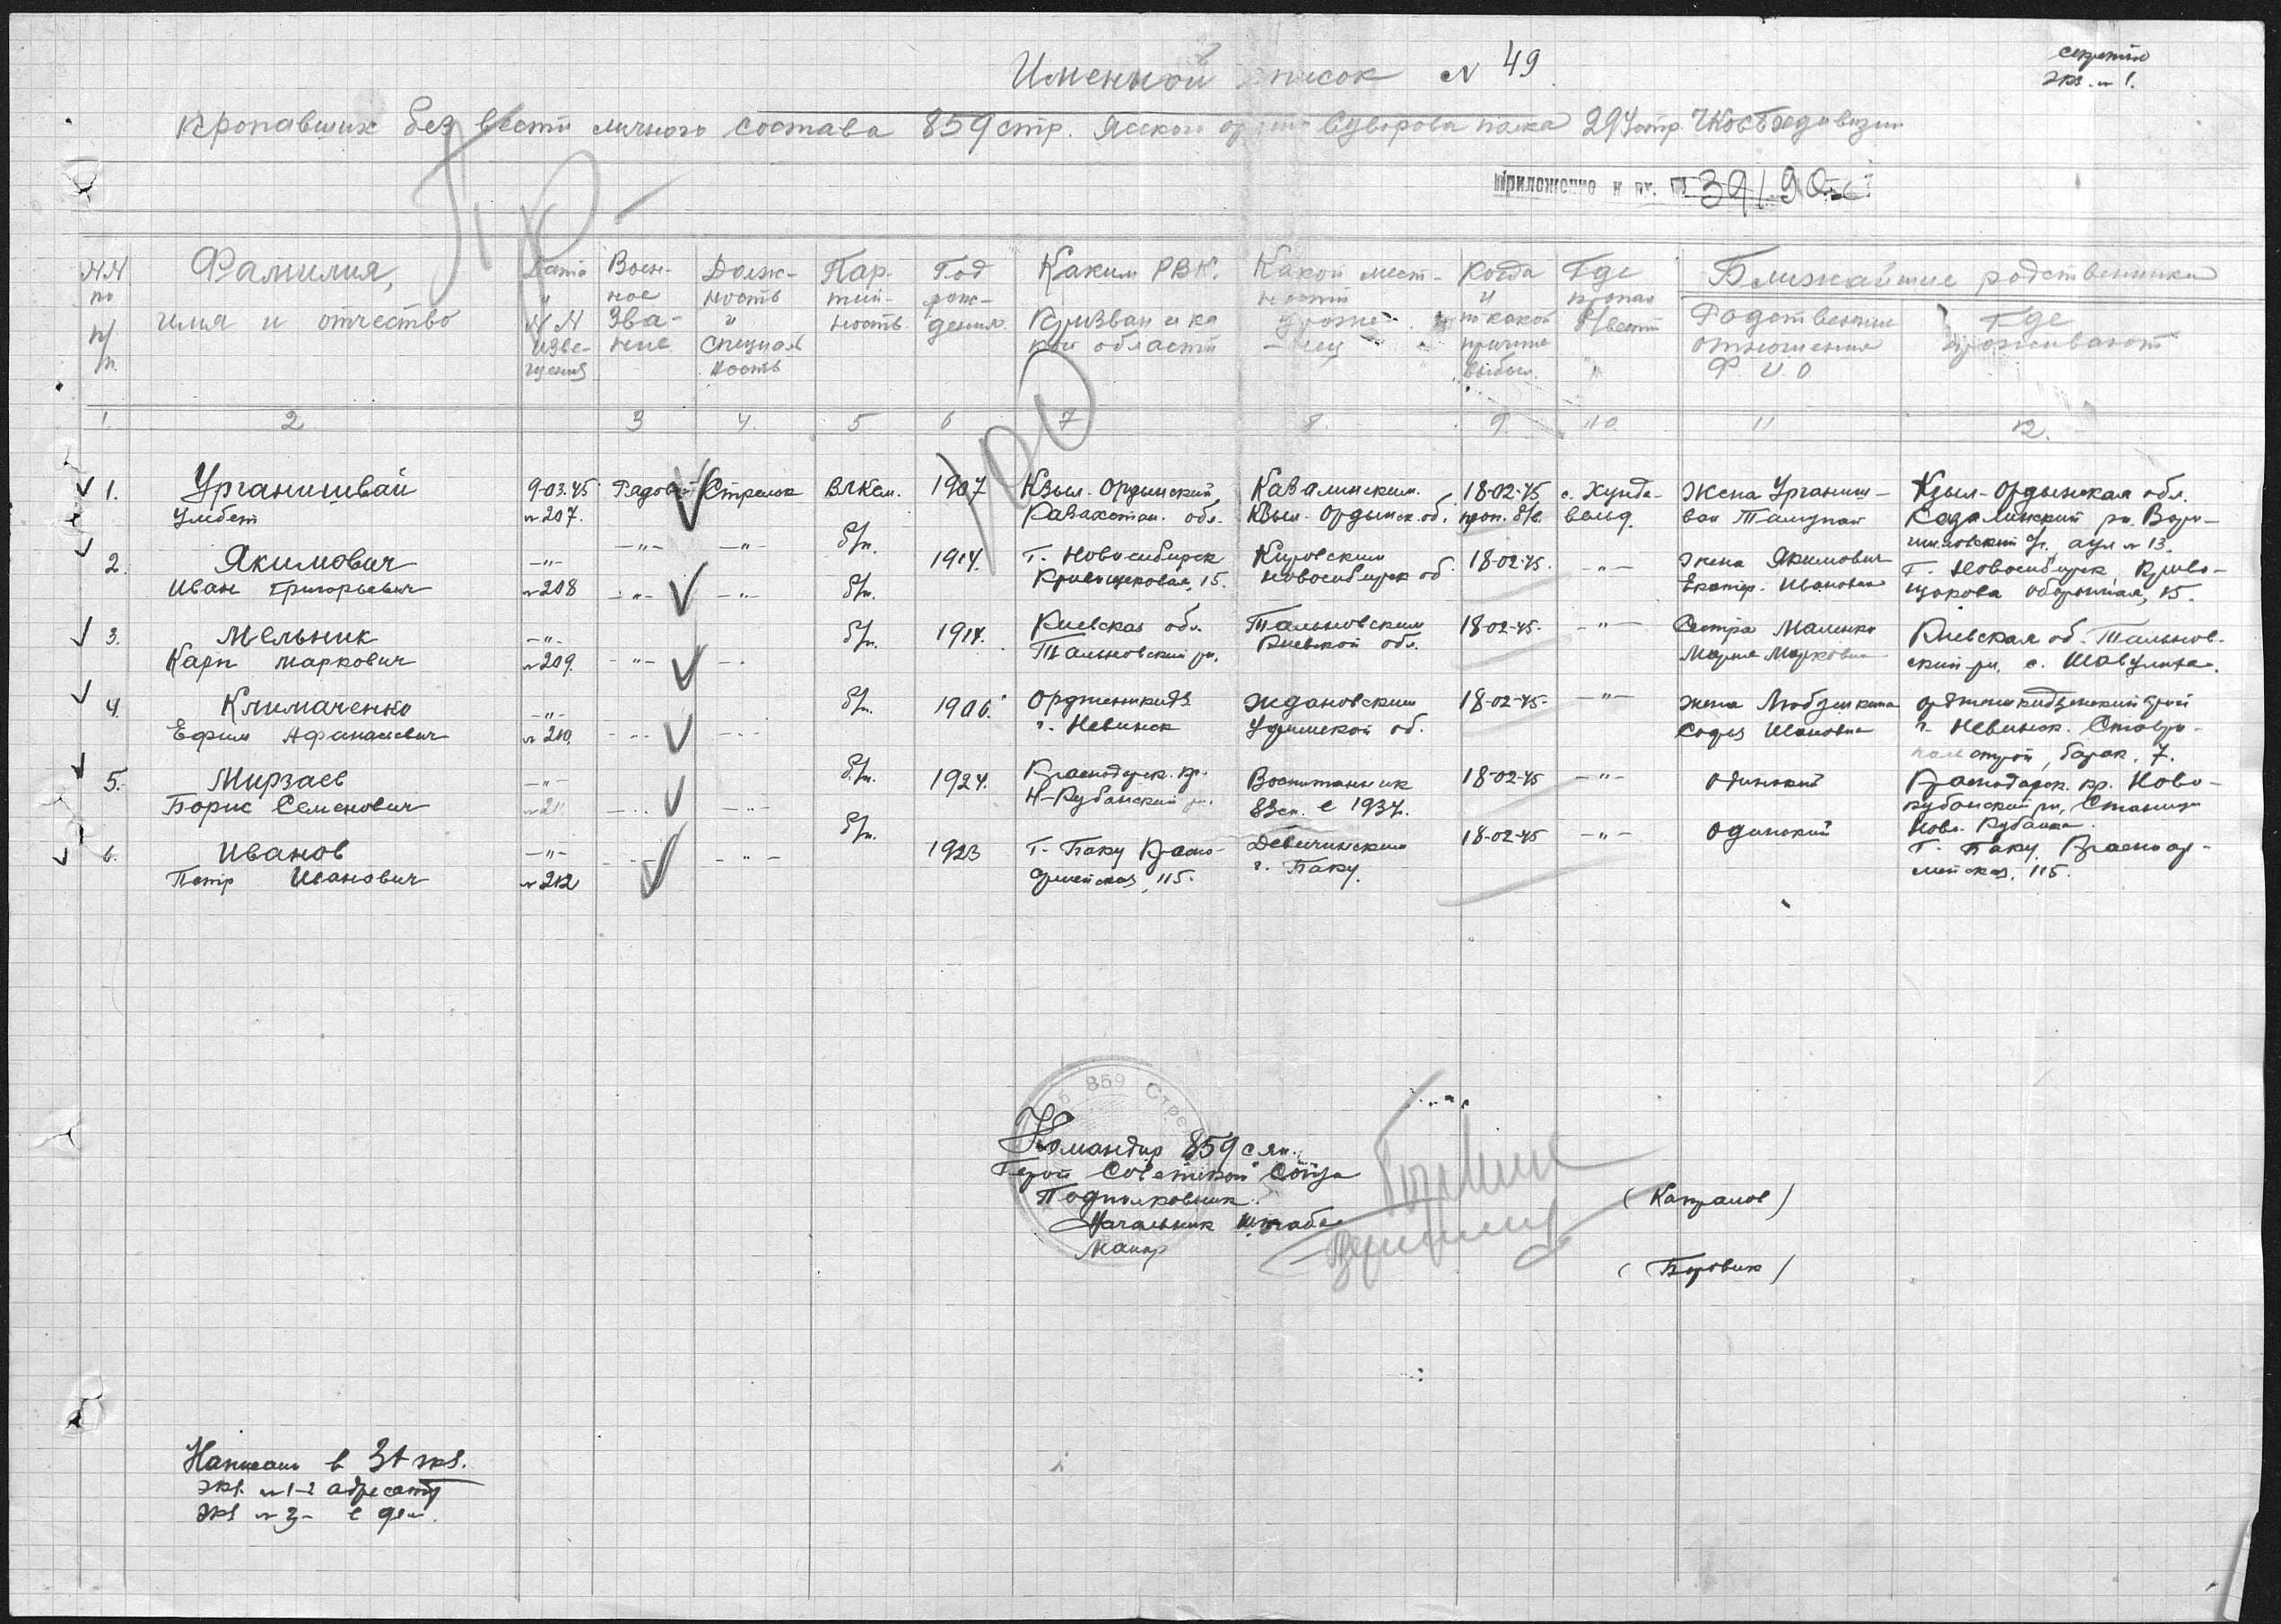 секретно
экз. № 1.
Именной список № 49
пропавших без вести личного состава 859 стр. Ясского ордена Суворова полка 294 стр. Черкасской дивизии
Приложение к вх. № 39190с
№№ по п/п.
Фамилия, имя и отчество
Дата и №№ извещения
Военное звание
Должность и специальность
Партийность
Год рождения
Каким РВК. призван и какой области
Какой местности уроженец
Когда и по какой причине выбыл
Где пропал б/вести
Ближайшие родственники
Родственные отношения Ф. И. О
Где проживают
1. 2 3 4. 5 6 7 8. 9. 10. 11 12.
1. Урганишвай 9-03.45 Рядовой Стрелок ВЛКСМ. 1907 Кзыл-Ординский Казалинский. 18-02-45 с. Хунда- Жена Урганиш- Кзыл-Ординская обл.
Улибет № 207. Казахстан. обл. Кзыл-Ординск. об. проп. б/в. вальд. вай Казалинский рн. Воро-
шиловский, аул № 13.
2. Якимович -"- -"- -"- б/п. 1914. г. Новосибирск Кировский 18-02-45. -"- Жена Якимович г. Новосибирск, Криво-
Иван Григорьевич № 208 Кривощековая, 15. Новосибирск об. Екатер. Ивановна щекова 15.
3. Мельник -"- -"- -"- б/п. 1914. Киевская обл. Тальновский 18-02-45. -"- Сестра Киевская об. Тальнов-
Карп Маркович № 209. Тальновский рн. Киевской обл. Мария Марковна ский рн. с.
4. Климаченко -"- -"- -"- б/п. 1906. Орджоникидз. Ждановский 18-02-45- -"- жена Орджоникидзевский край
Ефим Афанасиевич № 210. г. Невинск об. София Ивановна г. Невинск. барак. 7.
5. Мирзаев -"- -"- -"- б/п. 1924. Краснодарск. кр. Воспитанник 18-02-45 -"- одинокий Краснодарск. кр. Ново-
Борис Семенович № 211 Н-Кубанский рн. с 1937г. кубанский рн, Станица
Ново. Кубанка.
6. Иванов -"- -"- -"- б/п. 1923 г. Баку Красно- 18-02-45 -"- одинокий г. Баку Красноар-
Петр Иванович № 212 армейская, 115. г. Баку. мейская, 115.
859 Стрел
Командир 859 с яп.
Герой Советского Союза
Подполковник
(Капралов)
Начальник Штаба
Майор
(Боровик)
Написано в 3х экз.
экз. № 1-2 адресату
экз № 3 - в дел.